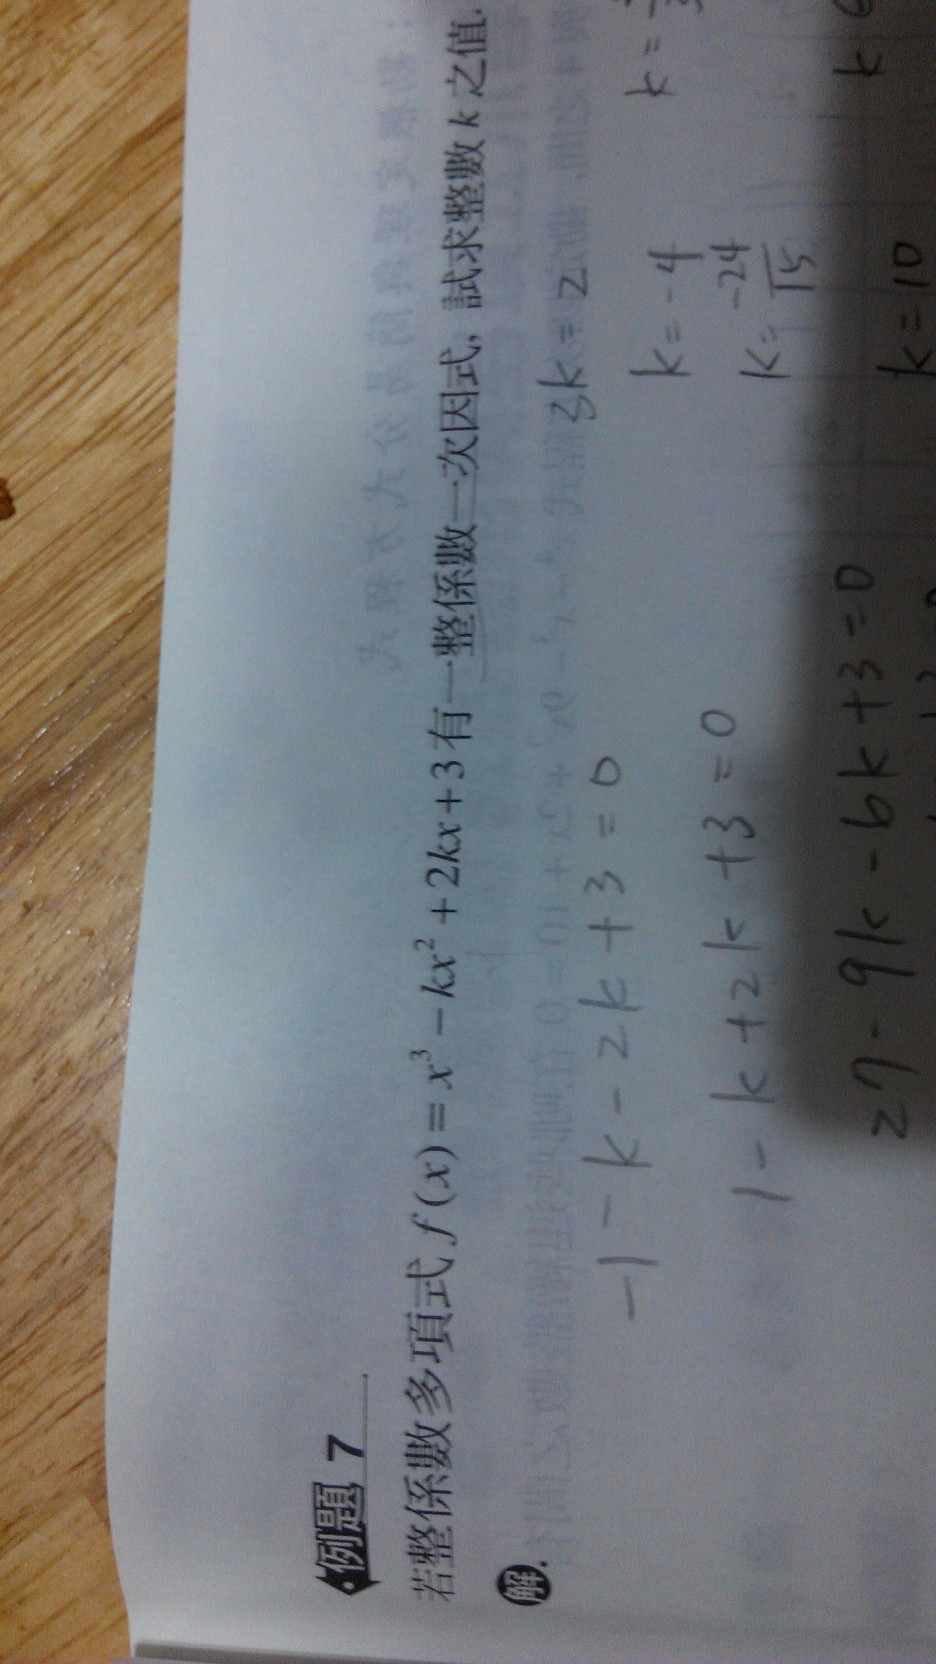 例題 7
若整係數多項式 f(x) = x³ − kx² + 2kx + 3 有一整係數一次因式, 試求整數 k 之值.
解.
-1 - k - 2k + 3 = 0
3k = 2
k =
1 - k + 2k + 3 = 0
k = -4
k = -24/15
27 - 9k - 6k + 3 = 0
k = 10
k